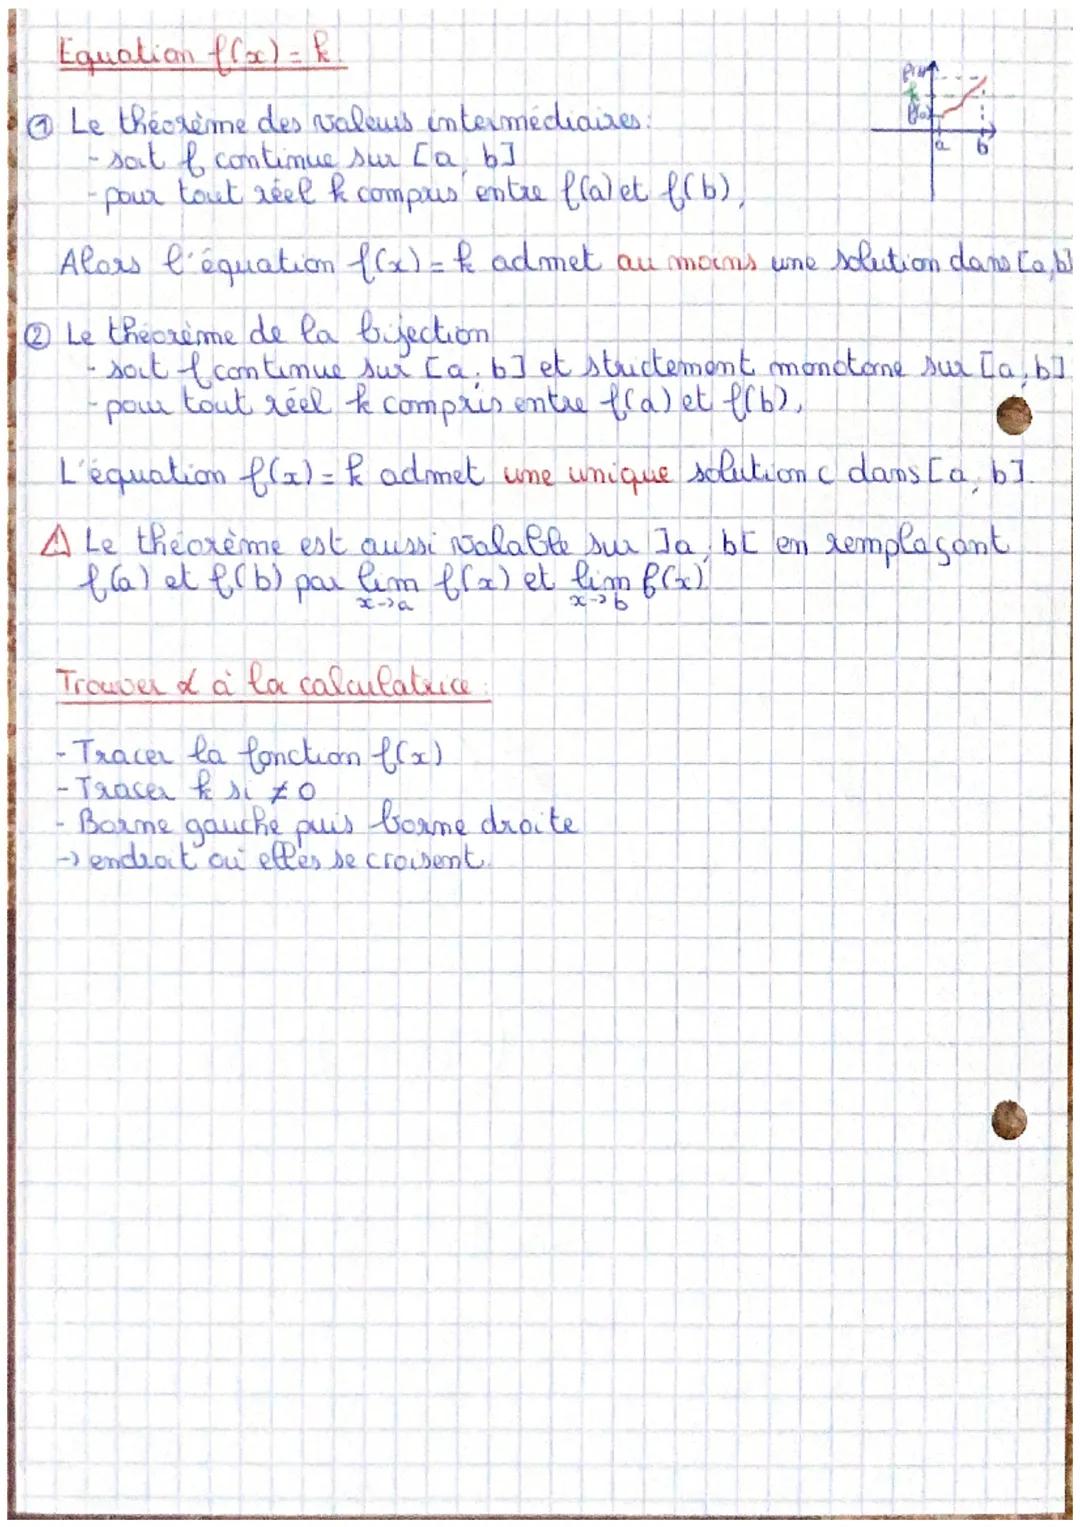 Equation f(x) = k.
f(b)
k
f(a)
a b
① Le théorème des valeurs intermédiaires:
- soit f continue sur [a, b]
- pour tout réel k compris entre f(a) et f(b),
Alors l'équation f(x) = k admet au moins une solution dans [a,b]
② Le théorème de la bijection
- soit f continue sur [a, b] et strictement monotone sur [a, b]
- pour tout réel k compris entre f(a) et f(b),
L'équation f(x) = k admet une unique solution c dans [a, b].
⚠ Le théorème est aussi valable sur ]a, b[ en remplaçant
f(a) et f(b) par lim f(x) et lim f(x)
x->a x->b
Trouver α à la calculatrice :
- Tracer la fonction f(x)
- Tracer k si ≠ 0
- Borne gauche puis borne droite
-> endroit où elles se croisent.